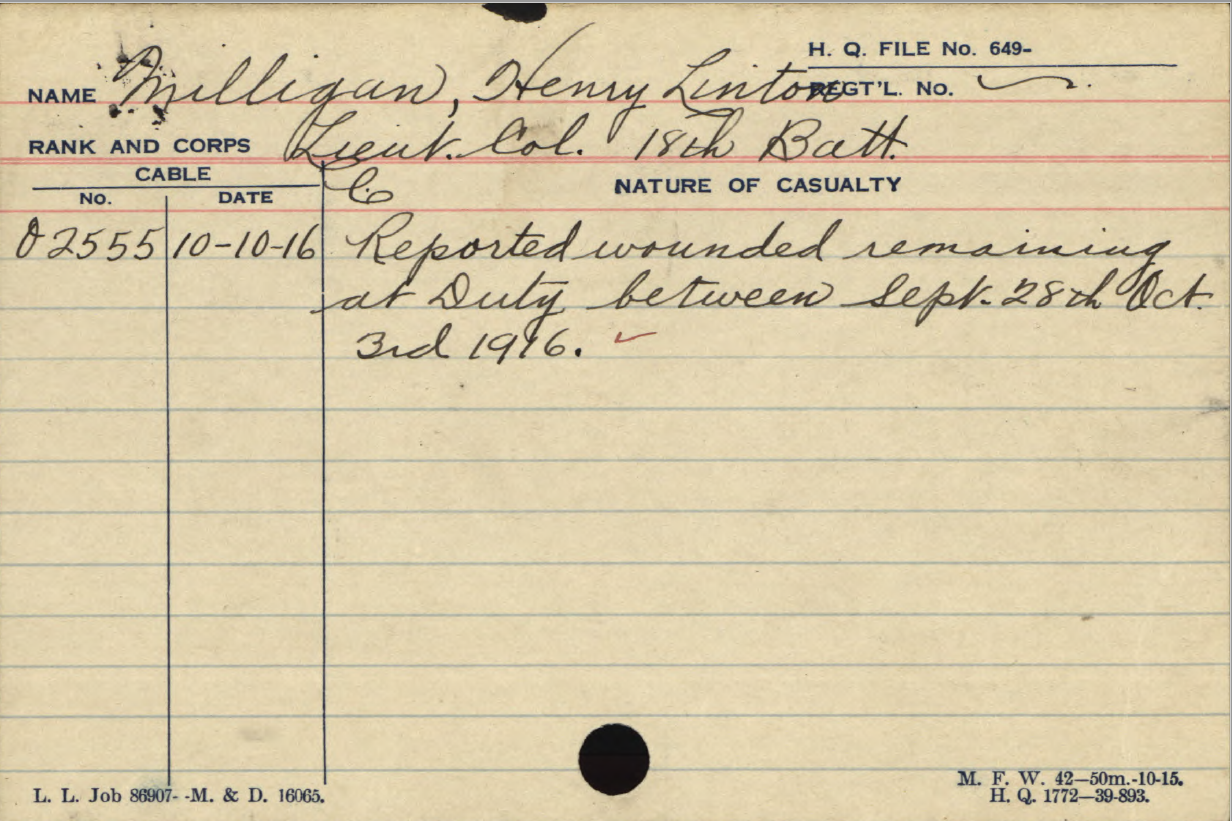 H. Q. FILE No. 649-
NAME Milligan, Henry Linton REGT'L. No.
RANK AND CORPS Lieut. Col. 18th Batt.
CABLE
C
NATURE OF CASUALTY
No. DATE
O2555 10-10-16 Reported wounded remaining
at Duty between Sept. 28th Oct.
3rd 1916.
L. L. Job 86907- -M. & D. 16065.
M. F. W. 42—50m.-10-15.
H. Q. 1772—39-893.